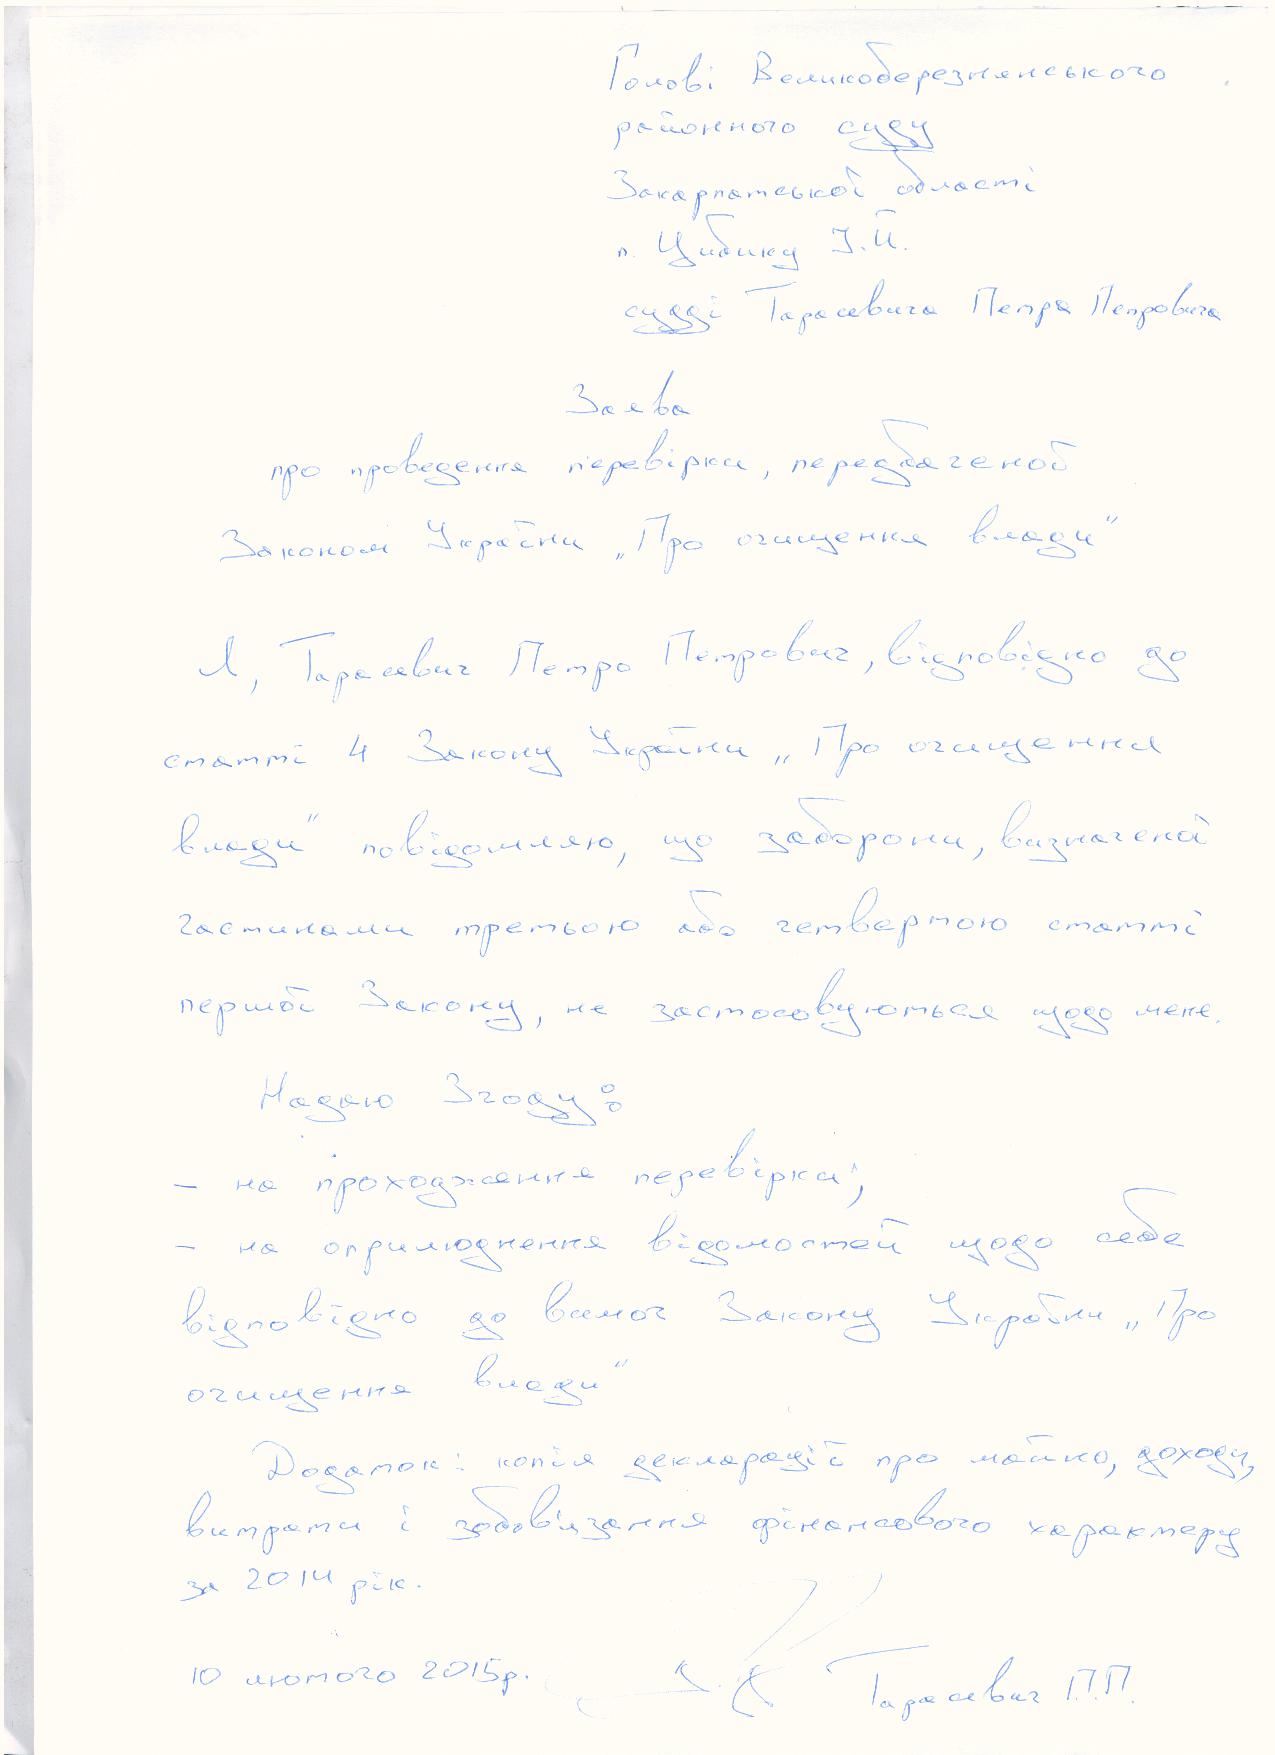 Голові Великоберезнянського
районного суду
Закарпатської області
п. Цибику І.Й.
судді Тарасевича Петра Петровича
Заява
про проведення перевірки, передбаченої
Законом України „Про очищення влади"
Я, Тарасевич Петро Петрович, відповідно до
статті 4 Закону України „Про очищення
влади" повідомляю, що заборони, визначені
частинами третьою або четвертою статті
першої Закону, не застосовуються щодо мене.
Надаю Згоду:
– на проходження перевірки;
– на оприлюднення відомостей щодо себе
відповідно до вимог Закону України „Про
очищення влади"
Додаток: копія декларації про майно, доходи,
витрати і зобов'язання фінансового характеру
за 2014 рік.
10 лютого 2015р. Тарасевич П.П.